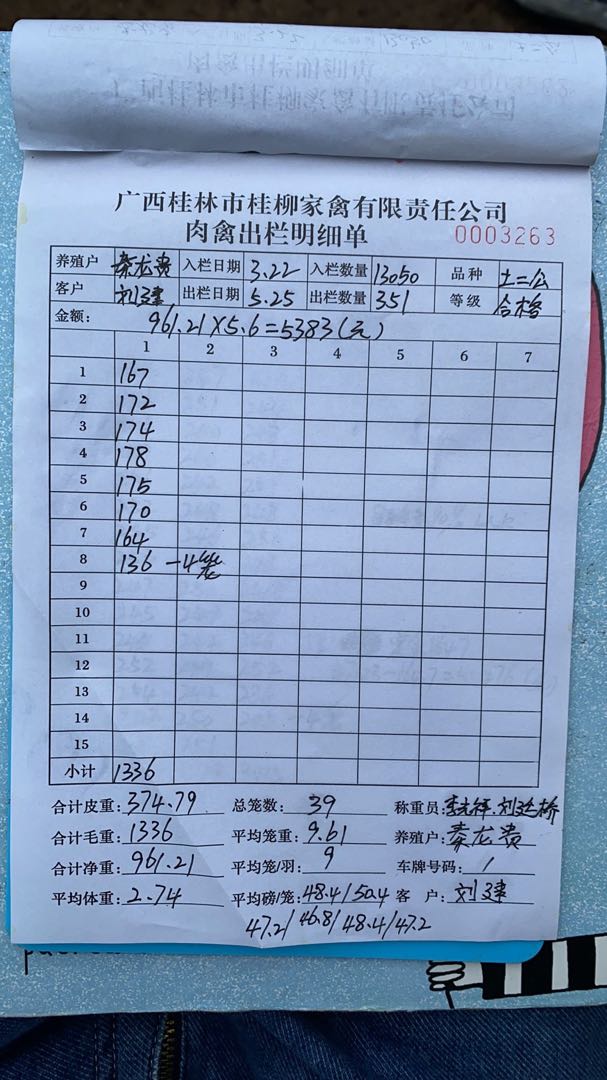 广西桂林市桂柳家禽有限责任公司
肉禽出栏明细单 0003263
养殖户 秦龙贵 入栏日期 3.22 入栏数量 13050 品种 土二公
客户 刘建 出栏日期 5.25 出栏数量 351 等级 合格
金额: 961.21×5.6=5383(元)
1 2 3 4 5 6 7
1 167
2 172
3 174
4 178
5 175
6 170
7 164
8 136 -4笼
9
10
11
12
13
14
15
小计 1336
合计皮重: 374.79 总笼数: 39 称重员:
合计毛重: 1336 平均笼重: 9.61 养殖户: 秦龙贵
合计净重: 961.21 平均笼/羽: 9 车牌号码: /
平均体重: 2.74 平均磅/笼: 48.4/50.4 客户: 刘建
47.2/46.8/48.4/47.2